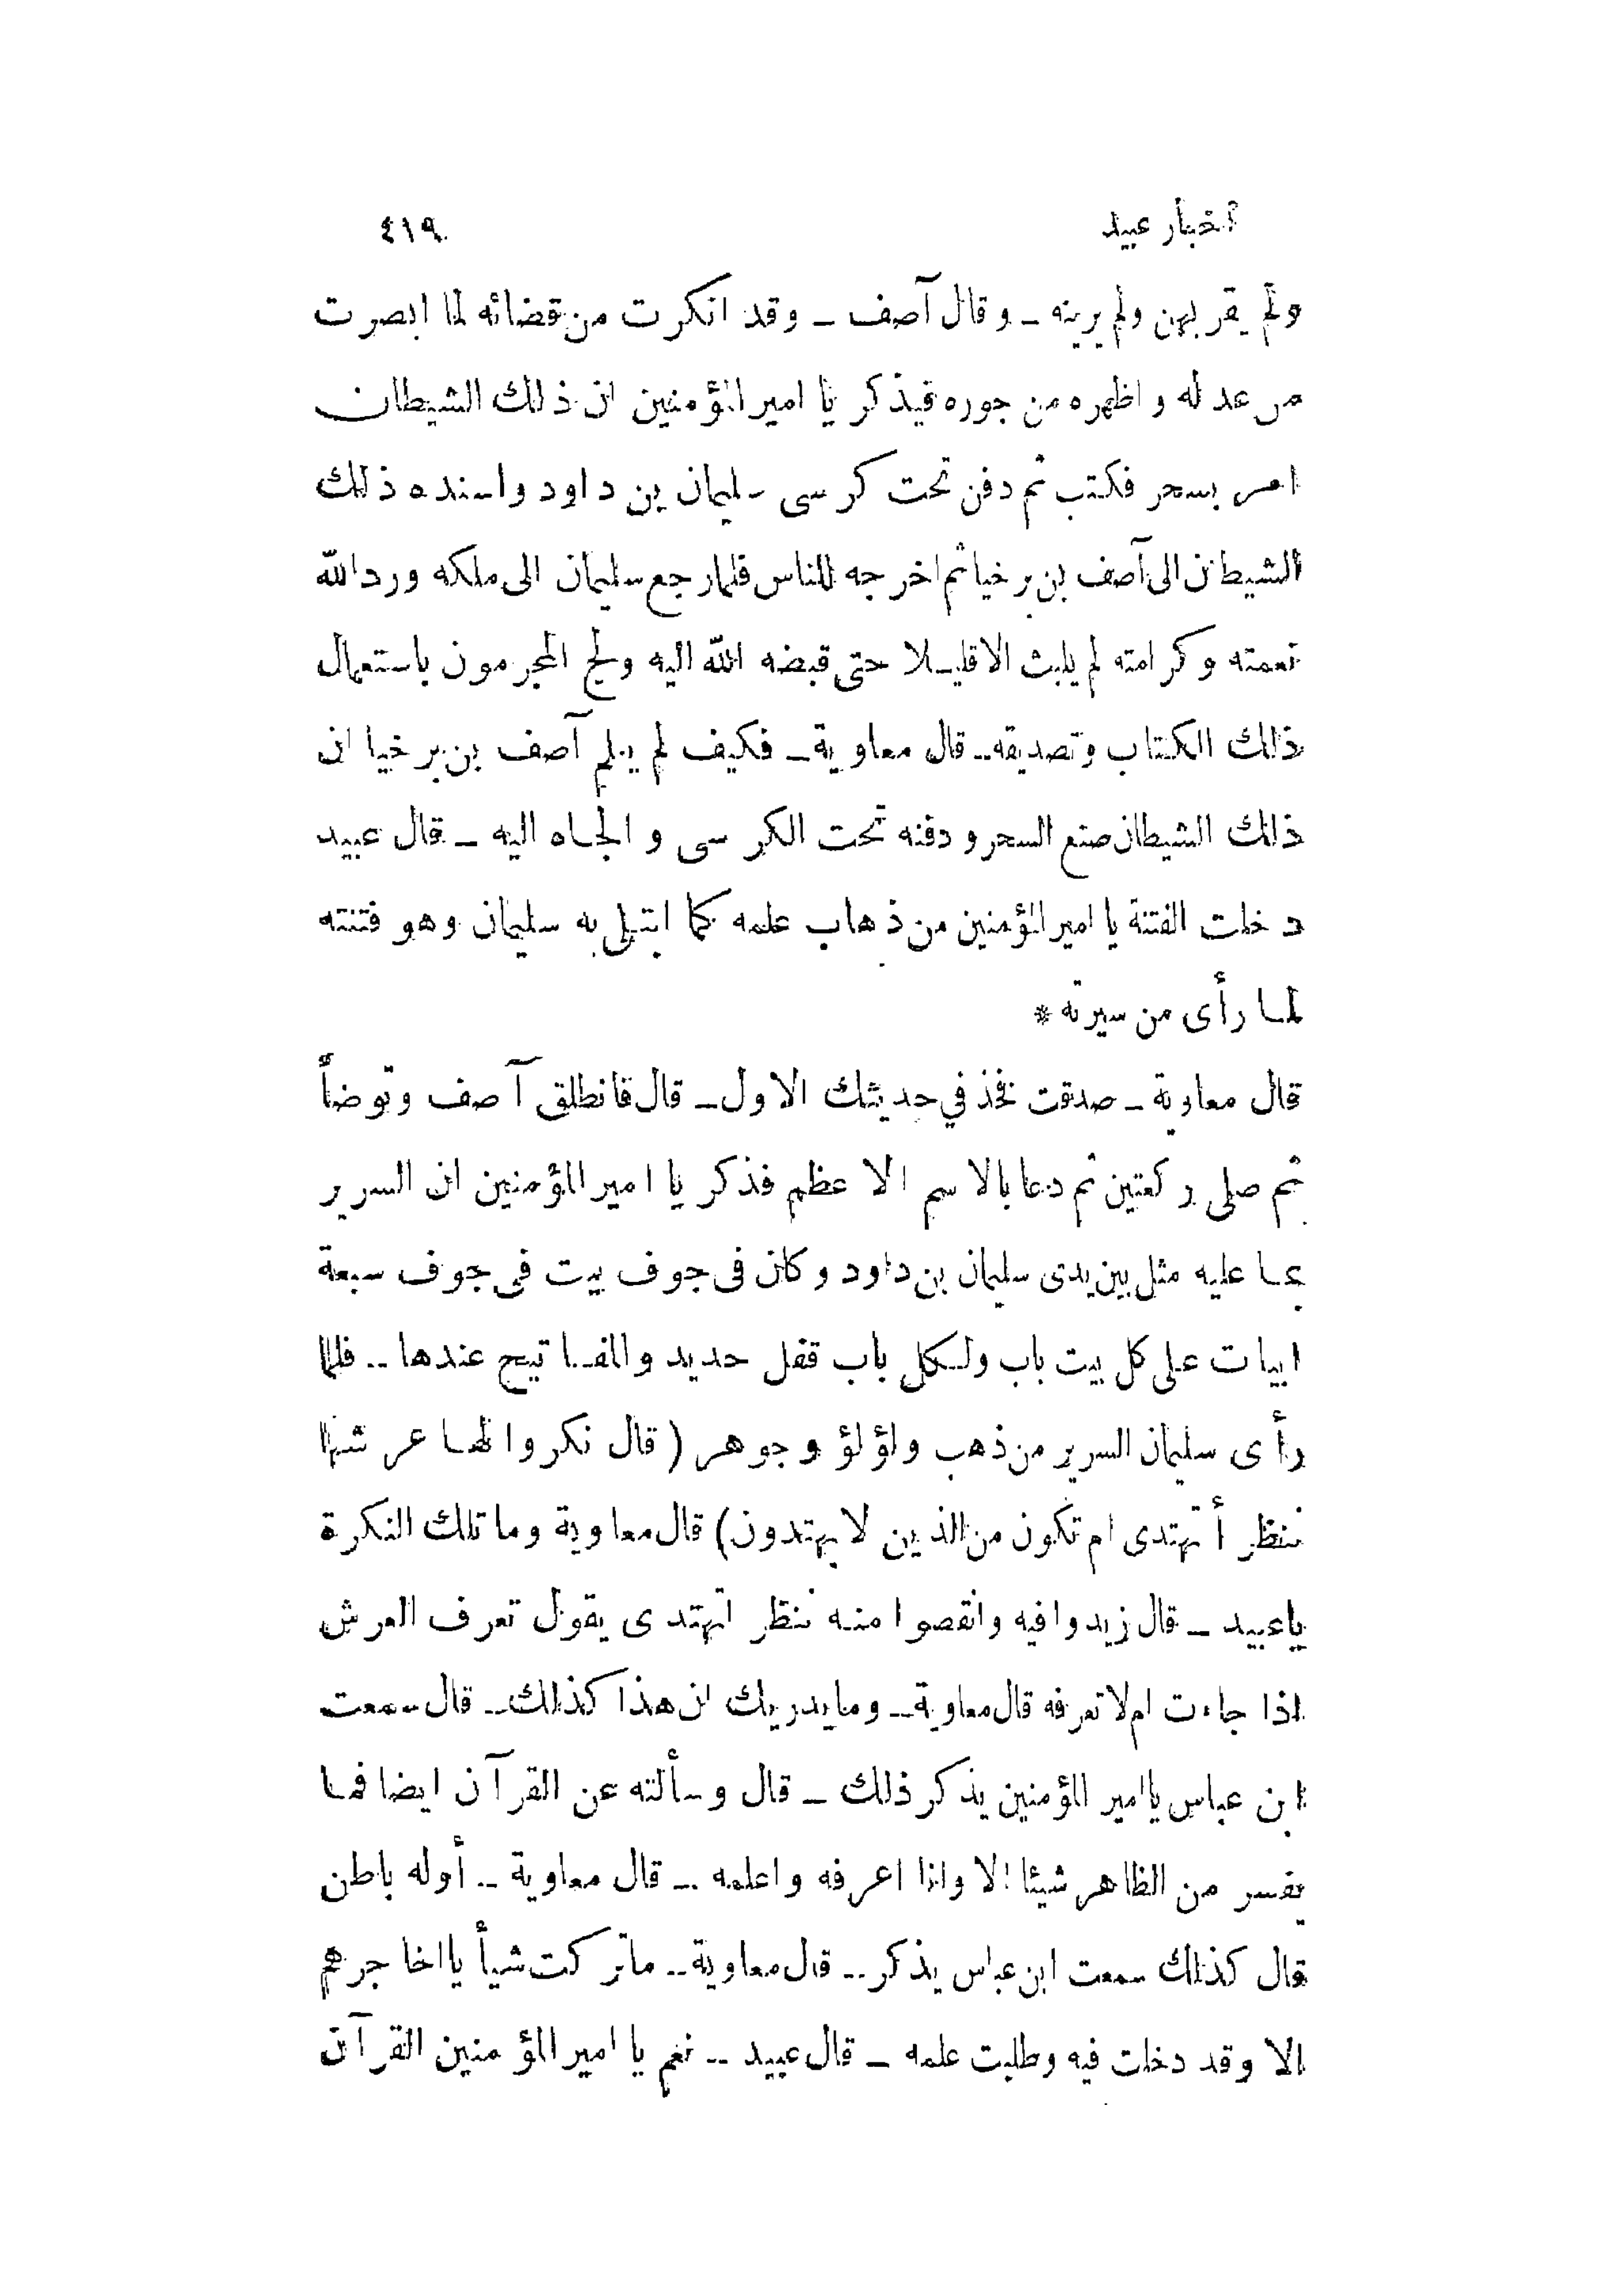 أخبار عبيد ٤١٩
ولم يقربهن ولم يرينه ـ وقال آصف ـ وقد انكرت من قضائه لما ابصرت
من عدله واظهره من جوره فيذكر يا امير المؤمنين ان ذلك الشيطان
امر بسحر فكتب ثم دفن تحت كرسى سليمان بن داود واسنده ذلك
الشيطان الى آصف بن برخيا ثم اخرجه للناس فلما رجع سليمان الى ملكه ورد الله
نعمته وكرامته لم يلبث الا قليلا حتى قبضه الله اليه ولج المجرمون باستعمال
ذلك الكتاب وتصديقه ـ قال معاوية ـ فكيف لم يعلم آصف بن برخيا ان
ذلك الشيطان صنع السحر ودفنه تحت الكرسى والجاه اليه ـ قال عبيد
دخلت الفتنة يا امير المؤمنين من ذهاب علمه كما ابتلى به سليمان وهو فتنته
لما رأى من سيرته *
قال معاوية ـ صدقت فخذ في حديثك الاول ـ قال فانطلق آصف وتوضأ
ثم صلى ركعتين ثم دعا بالاسم الاعظم فذكر يا امير المؤمنين ان السرير
بما عليه مثل بين يدى سليمان بن داود وكان فى جوف بيت فى جوف سبعة
ابيات على كل بيت باب ولكل باب قفل حديد والمفاتيح عندها ـ فلما
رأى سليمان السرير من ذهب ولؤلؤ وجوهر (قال نكروا لها عرشها
ننظر أتهتدى ام تكون من الذين لا يهتدون) قال معاوية وما تلك النكرة
يا عبيد ـ قال زيدوا فيه وانقصوا منه ننظر اتهتدى يقول تعرف العرش
اذا جاءت ام لا تعرفه قال معاوية ـ وما يدريك ان هذا كذلك ـ قال سمعت
ابن عباس يا امير المؤمنين يذكر ذلك ـ قال وسألته عن القرآن ايضا فما
يفسر من الظاهر شيئا الا واذا اعرفه واعلمه ـ قال معاوية ـ أوله باطن
قال كذلك سمعت ابن عباس يذكر ـ قال معاوية ـ ما تركت شيأ يا اخا جرهم
الا وقد دخلت فيه وطلبت علمه ـ قال عبيد ـ نعم يا امير المؤمنين القرآن